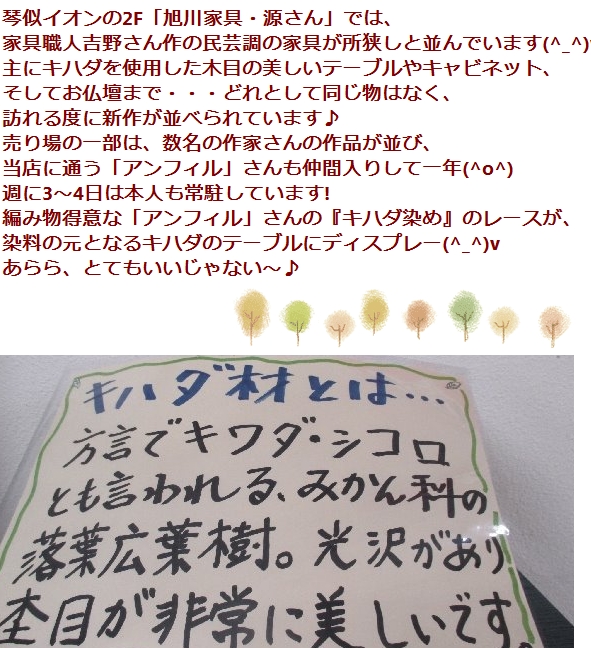 琴似イオンの2F「旭川家具・源さん」では、
家具職人吉野さん作の民芸調の家具が所狭しと並んでいます(^_^)v
主にキハダを使用した木目の美しいテーブルやキャビネット、
そしてお仏壇まで・・・どれとして同じ物はなく、
訪れる度に新作が並べられています♪
売り場の一部は、数名の作家さんの作品が並び、
当店に通う「アンフィル」さんも仲間入りして一年(^o^)
週に3～4日は本人も常駐しています!
編み物得意な「アンフィル」さんの『キハダ染め』のレースが、
染料の元となるキハダのテーブルにディスプレー(^_^)v
あらら、とてもいいじゃない～♪
キハダ材とは…
方言でキワダ・シコロ
とも言われる、みかん科の
落葉広葉樹。光沢があり
杢目が非常に美しいです。